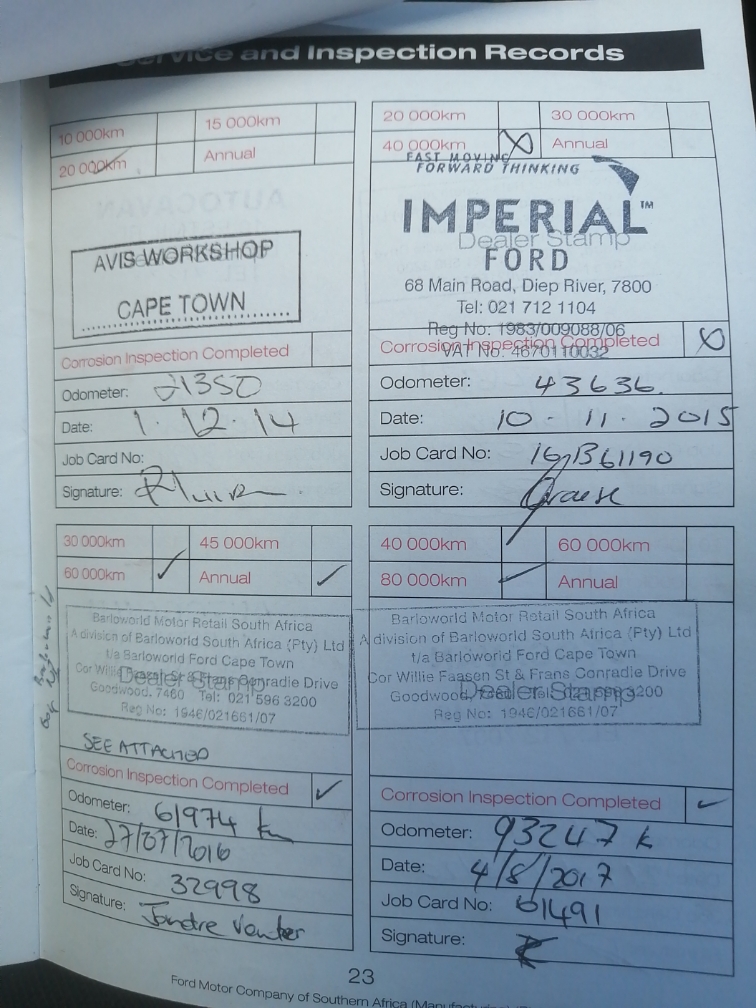 Service and Inspection Records
10 000km
15 000km
20 000km
Annual
AVIS WORKSHOP
CAPE TOWN
Corrosion Inspection Completed
Odometer: 21350
Date: 1.12.14
Job Card No:
Signature:
20 000km
30 000km
40 000km X
Annual
FAST MOVING
FORWARD THINKING
IMPERIAL™
Dealer Stamp
FORD
68 Main Road, Diep River, 7800
Tel: 021 712 1104
Reg No: 1983/009088/06
Corrosion Inspection Completed X
VAT No: 4670110032
Odometer: 43636.
Date: 10-11.2015
Job Card No:
Signature:
30 000km
45 000km
60 000km ✓
Annual ✓
Barloworld Motor Retail South Africa
A division of Barloworld South Africa (Pty) Ltd
t/a Barloworld Ford Cape Town
Cor Willie Faasen St & Frans Conradie Drive
Dealer Stamp
Goodwood. 7460 Tel: 021 596 3200
Reg No: 1946/021661/07
SEE ATTACHED
Corrosion Inspection Completed ✓
Odometer: 61974 km
Date: 27/07/2016
Job Card No: 32998
Signature: Jandre Venter
40 000km
60 000km
80 000km ✓
Annual
Barloworld Motor Retail South Africa
A division of Barloworld South Africa (Pty) Ltd
t/a Barloworld Ford Cape Town
Cor Willie Faasen St & Frans Conradie Drive
Goodwood. Dealer Stamp 3200
Reg No: 1946/021661/07
Corrosion Inspection Completed ✓
Odometer: 93247 k
Date: 4/8/2017
Job Card No: 61491
Signature:
23
Ford Motor Company of Southern Africa